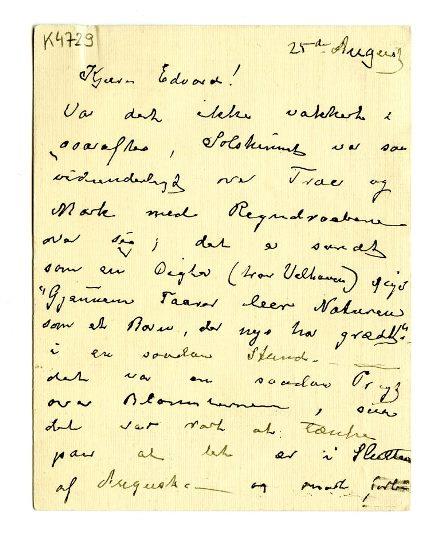 K4729
25de August
Kjære Edvard!
Var det ikke vakkert i
aaraftes, Solskinnet var saa
vidunderligt over Trær og
Mark med Regndraabene
over sig; det er sandt
som en Digter (tror Velhaven) siger
"Gjennem Taarer leer Naturen
som et Barn, der nys har grædt"
i en saadan Stund.
det var en saadan Fryd
over Blomsterne,
det var rart at tænke
paa at det er i Slutten
af August — og